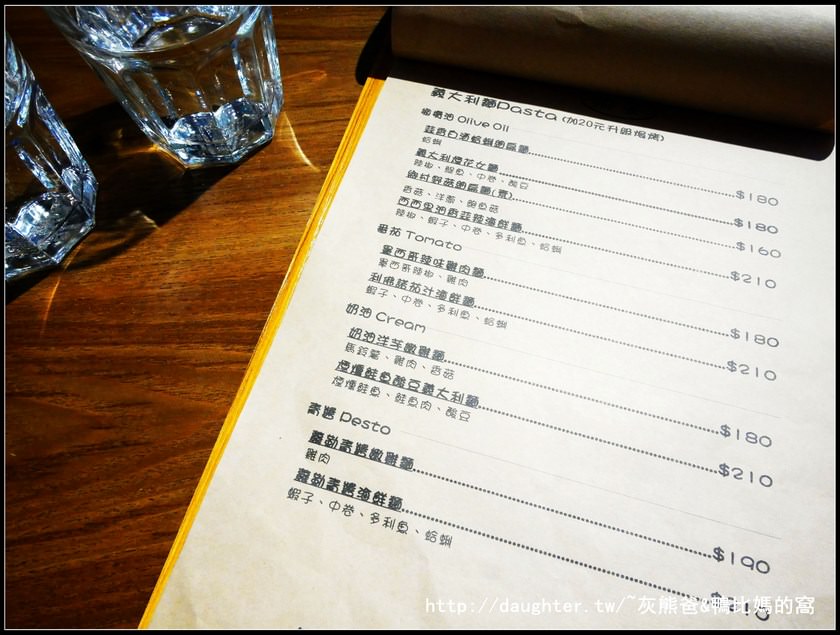 義大利麵Pasta (加20元升級焗烤)
橄欖油 Olive Oil
蒜香白酒蛤蜊細扁麵 $180
蛤蜊
義大利煙花女麵 $180
辣椒、鯷魚、中卷、酸豆
鄉村野菇細扁麵(素) $160
香菇、洋菇、鮑魚菇
西西里油香蒜辣海鮮麵 $210
辣椒、蝦子、中卷、多利魚、蛤蜊
番茄 Tomato
墨西哥辣味雞肉麵 $180
墨西哥辣椒、雞肉
利麻諾茄汁海鮮麵 $210
蝦子、中卷、多利魚、蛤蜊
奶油 Cream
奶油洋芋嫩雞麵 $180
馬鈴薯、雞肉、香菇
煙燻鮭魚酸豆義大利麵 $210
煙燻鮭魚、鮭魚肉、酸豆
青醬 Pesto
蘿勒青醬嫩雞麵 $190
雞肉
蘿勒青醬海鮮麵
蝦子、中卷、多利魚、蛤蜊
http://daughter.tw/~灰熊爸&鴨比媽的窩